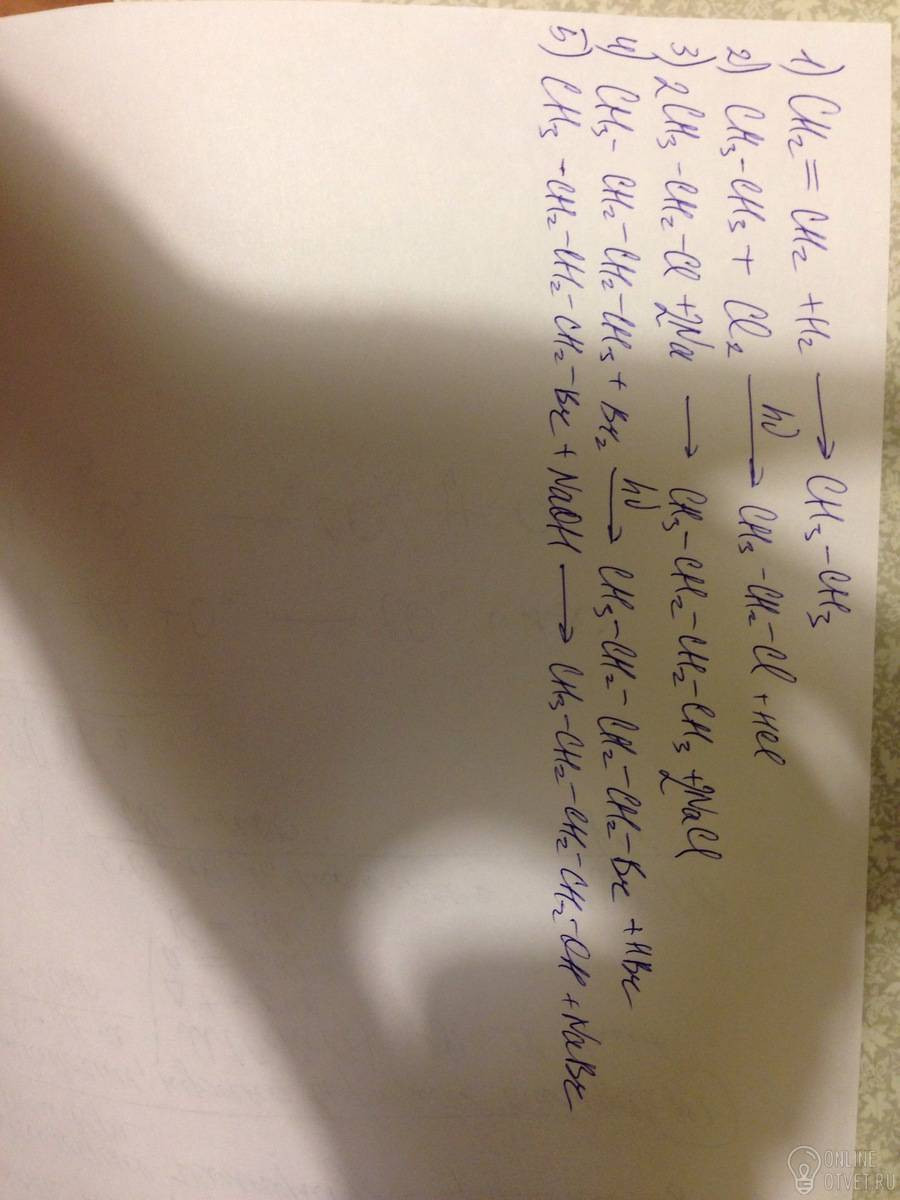 1) CH₂ = CH₂ + H₂ ⟶ CH₃ – CH₃
2) CH₃ – CH₃ + Cl₂ hν⟶ CH₃ – CH₂ – Cl + HCl
3) 2CH₃ – CH₂ – Cl + 2Na ⟶ CH₃ – CH₂ – CH₂ – CH₃ + 2NaCl
4) CH₃ – CH₂ – CH₂ – CH₃ + Br₂ hν⟶ CH₃ – CH₂ – CH₂ – CH₂ – Br + HBr
5) CH₃ – CH₂ – CH₂ – CH₂ – Br + NaOH ⟶ CH₃ – CH₂ – CH₂ – CH₂ – OH + NaBr
ONLINE
OTVET.RU